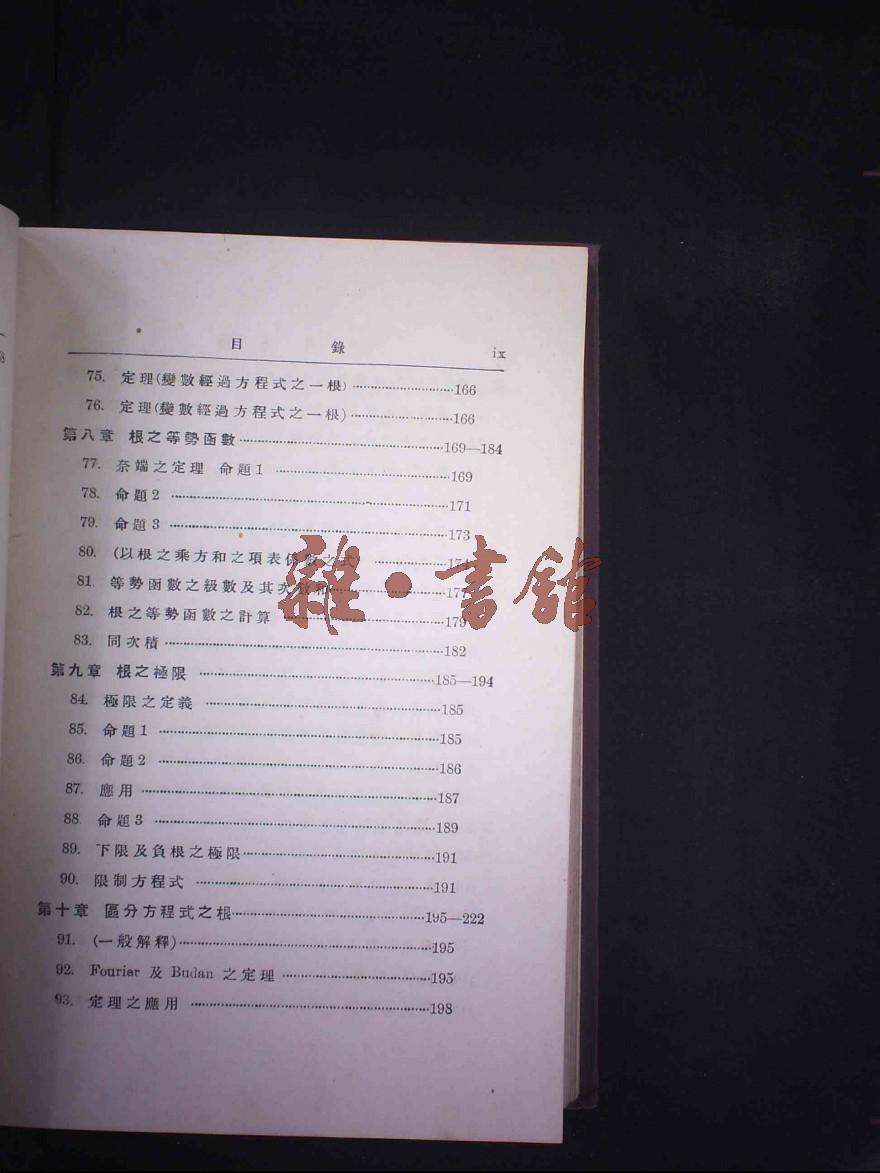 目 錄 ix
75. 定理(變數經過方程式之一根) 166
76. 定理(變數經過方程式之一根) 166
第八章 根之等勢函數 169—184
77. 奈端之定理 命題1 169
78. 命題2 171
79. 命題3 173
80. (以根之乘方和之項表係數之式) 174
81. 等勢函數之級數及其次數和 177
82. 根之等勢函數之計算 179
83. 同次積 182
第九章 根之極限 185—194
84. 極限之定義 185
85. 命題1 185
86. 命題2 186
87. 應用 187
88. 命題3 189
89. 下限及負根之極限 191
90. 限制方程式 191
第十章 區分方程式之根 195—222
91. (一般解釋) 195
92. Fourier 及 Budan 之定理 195
93. 定理之應用 198
雜·書館